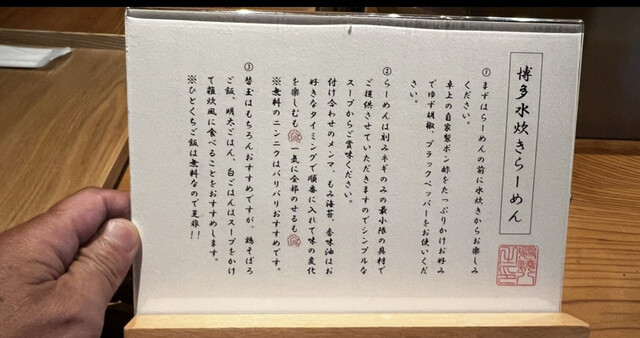 博多水炊きらーめん
①まずはらーめんの前に水炊きからお楽しみ
ください。
卓上の自家製ポン酢をたっぷりかけお好み
でゆず胡椒、ブラックペッパーをお使いくだ
さい。
②らーめんは刻みネギのみの最小限の具材で
ご提供させていただきますのでシンプルな
スープからご賞味ください。
付け合わせのメンマ、もみ海苔、香味油はお
好きなタイミングで順番に入れて味の変化
を楽しむも 一気に全部のせるも
※無料のニンニクはバリバリおすすめです。
③替玉はもちろんおすすめですが、鶏そぼろ
ご飯、明太ごはん、白ごはんはスープをかけ
て雑炊風に食べることをおすすめします。
※ひとくちご飯は無料なので是非！！